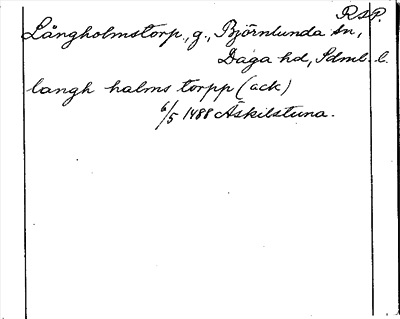 RSP.
Långholmstorp, g., Björnlunda sn,
Daga hd, Sdml. l.
langh halms torpp (ack)
6/5 1488 Äskilstuna.